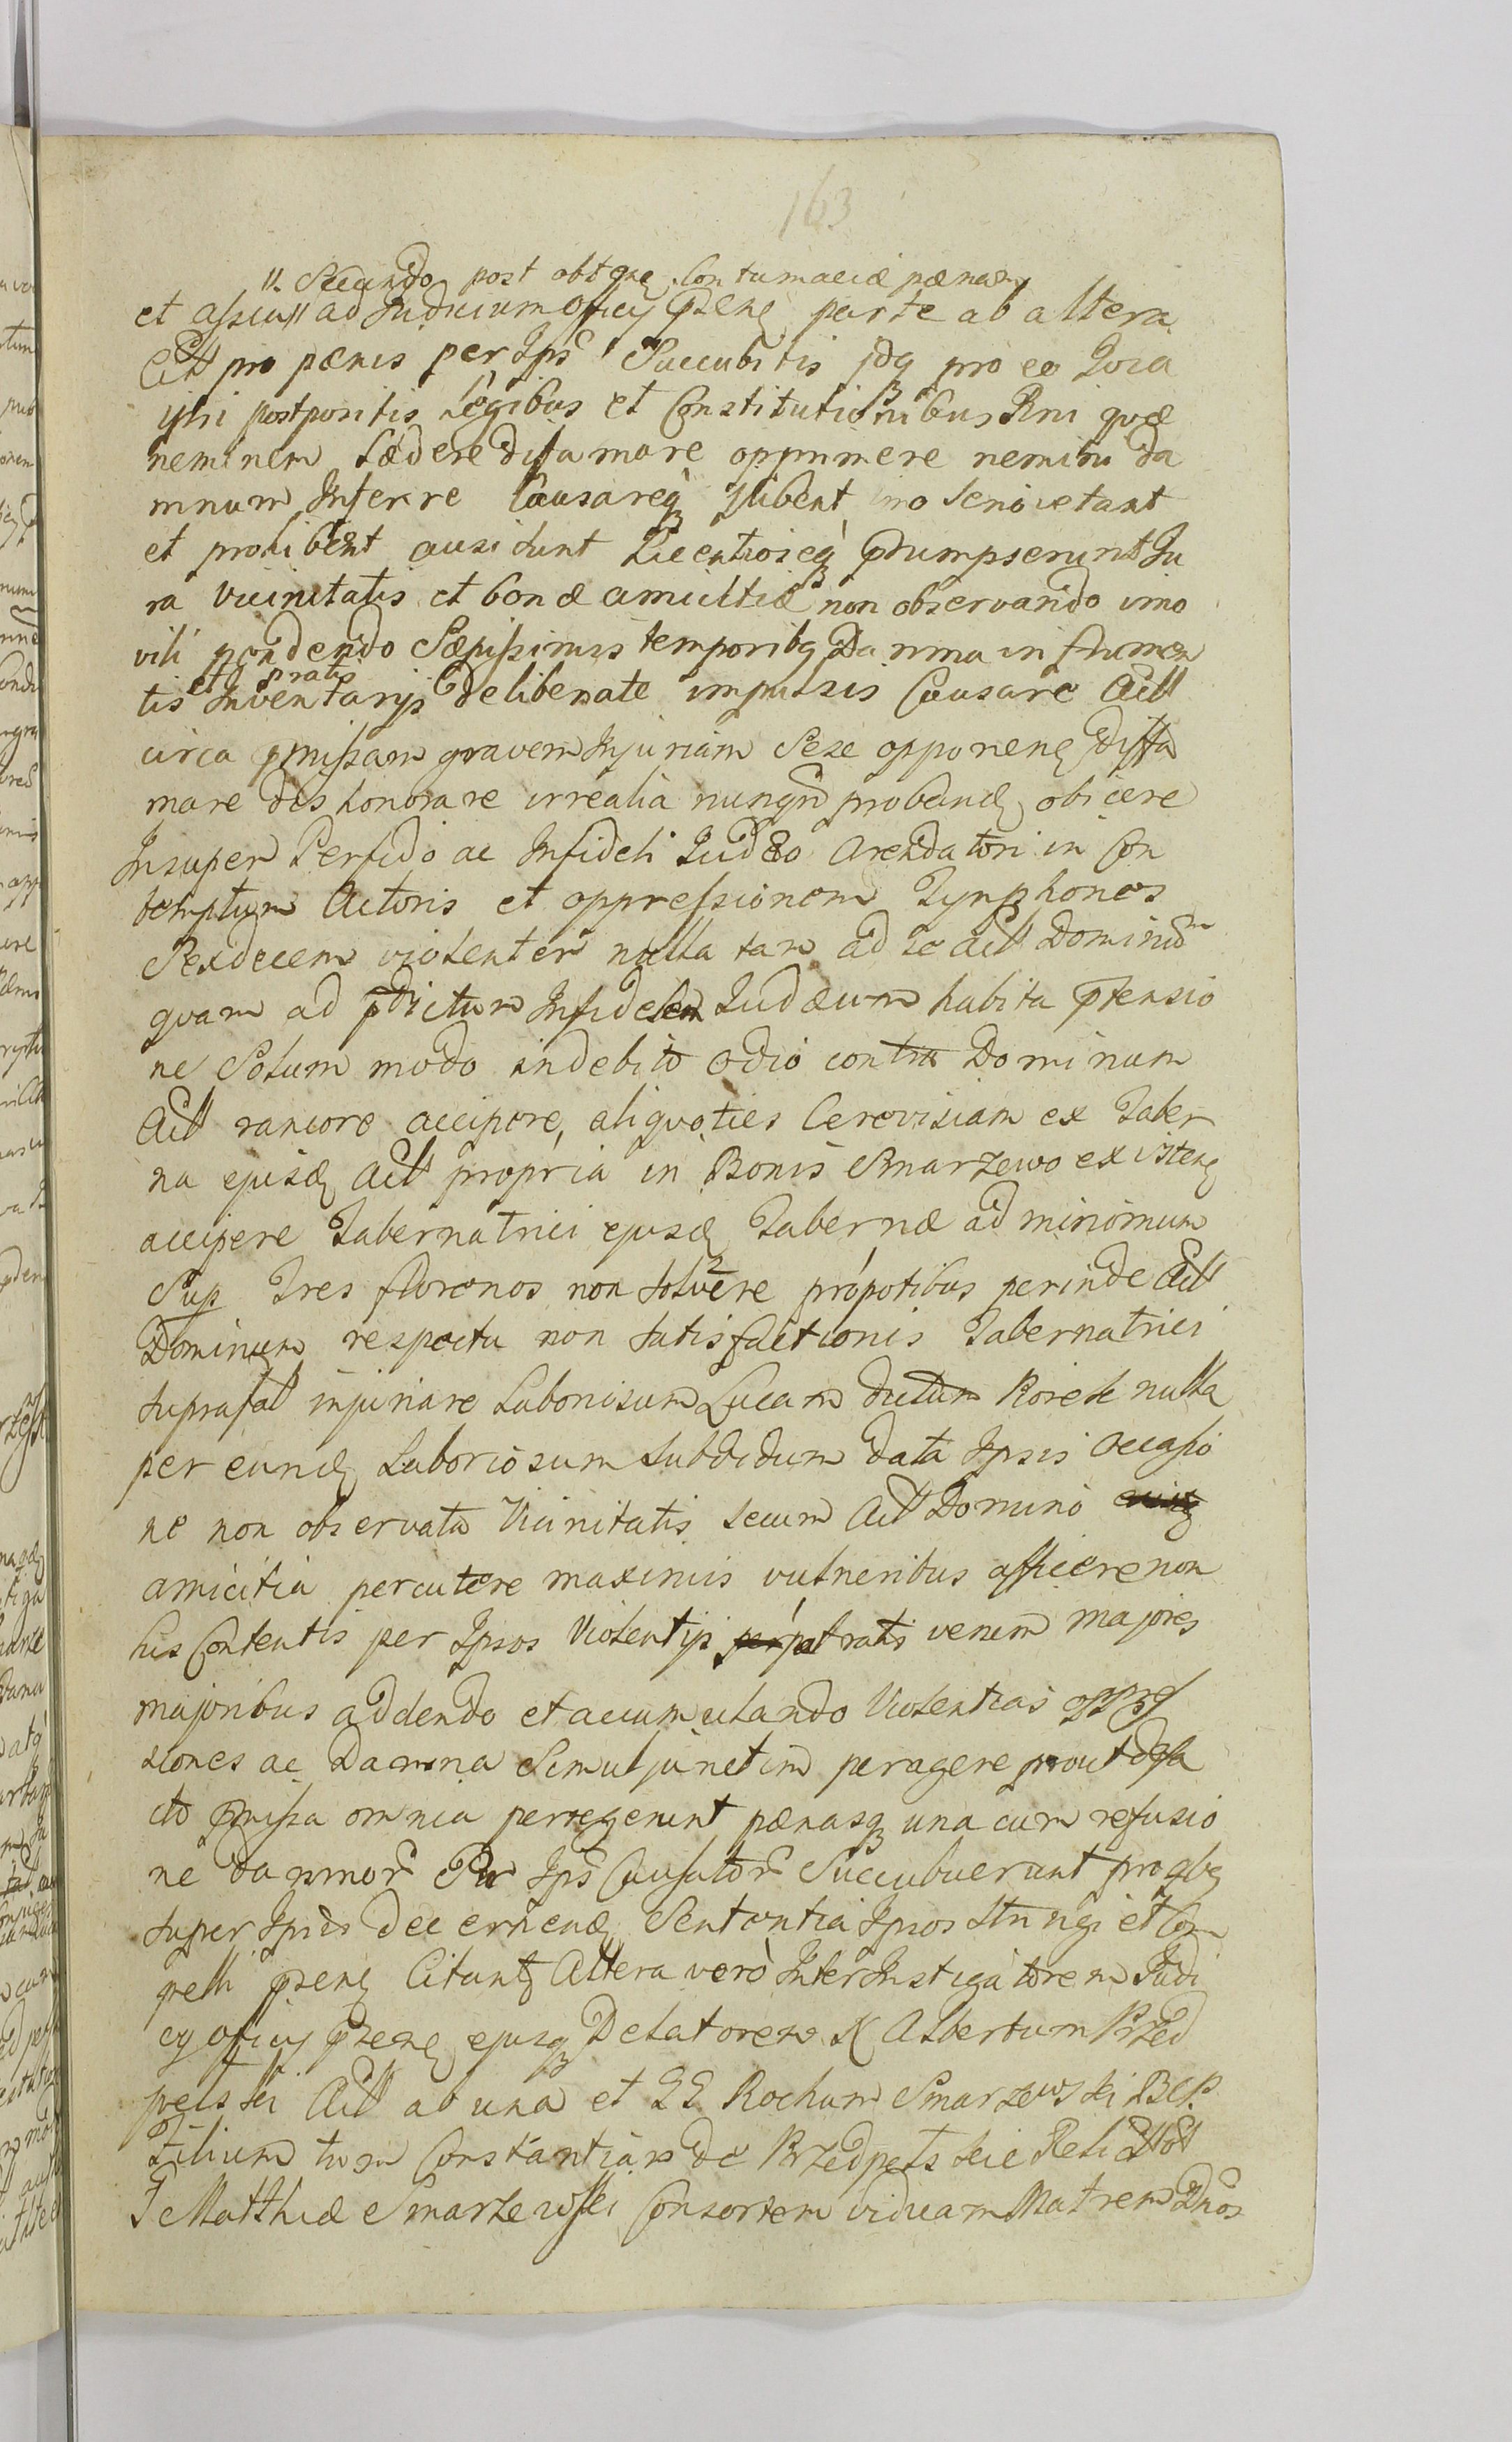 163
11. Secundo post obtque Contumaciæ pænam
et assius 11 ad Judicium Officy Psens parte ab altera
Citt pro pænis per Ips Succubitis jdq pro eo Quia
ipsi postpositis Legibus et Constitutionibus Rni quæ
neminem Lædere difamare opprimere nemini da
mnum Inferre Causareq Jubent imo Serio vetant
et prohibent ausi sunt Licentioseq Psumpserunt Ju
ra Vicinitatis et bonæ amicitiæ non observando imo
vili pendendo Sæpissimis temporibq Damna in frumen
et pratis
tis Inventarijs deliberate impulsis Causare Actt
circa Pmissam gravem Injuriam Seze opponens diffa
mare dishonorare irrealia nunqm proband obicere
Insuper Perfido ac Infideli Judæo Arendatori in Con
temptum Actoris et oppressionem Tynphones
Sexdecem violenter nulla tam ad se actt Dominum
quam ad pdictum Infidelem Judæum habita Ptensio
ne Solum modo indebito odio contra Dominum
Actt rancore accipere, aliquoties Cerevisiam ex Taber
na ejusd Actt propria in Bonis Smarzewo existens
accipere Tabernatrici ejusd Tabernæ ad minimum
Sup Tres florenos non solvere propotibus perinde Actt
Dominum respectu non satisfactionis Tabernatrici
suprafat injuriare Laboriosum Lucam dictum Rorek nulla
per eund Laboriosum Subditum data Ipsis occasio
ne non observata Vicinitatis secum Actt Domino
amicitia percutere maximis vulneribus afficere non
his Contentis per Ipsos Violentijs perpetratis verum majores
majoribus addendo et accumulando Violentias oppres
siones ac Damna Simul junctim peragere prout defa
cto Pmissa omnia peregerunt pænasq una cum refusio
ne damnor Per Ips Causator Succubuerunt pro qbq
super Ipsis decernend Sententia Ipsos Stringi et Com
pelli psens Citant Altera verò Inter Instigatorem Judi
cy officy Psens ejusq Delatorem N Albertum Przed
pelski Actt ab una et GG Rochum Smarzewski BCP.
Filium tum Constantiam de Przedpelskie Relictt ol
G Matthiæ Smarzewski Consortem viduam Matrem Dnos